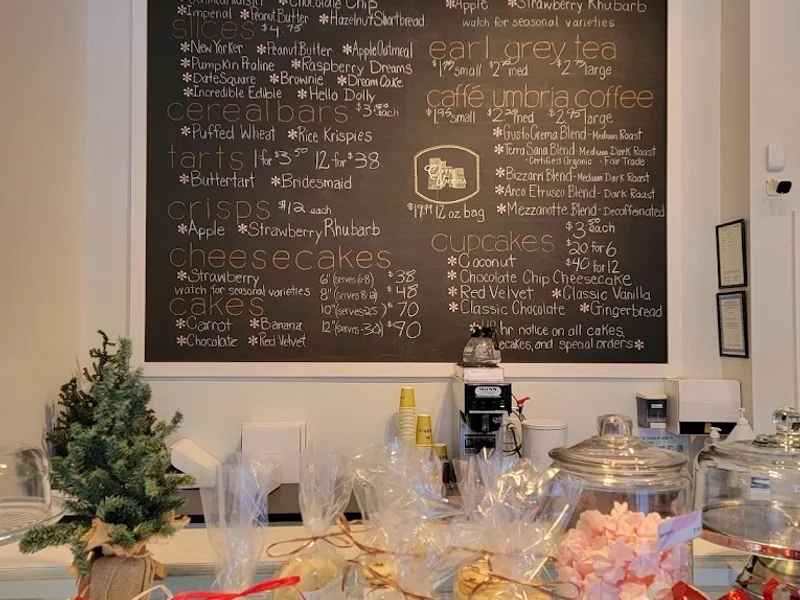 Chocolate Chip
*Imperial *Peanut Butter *Hazelnut Shortbread
slices $4.75
*New Yorker *Peanut Butter *Apple Oatmeal
*Pumpkin Praline *Raspberry Dreams
*Date Square *Brownie *Dream Cake
*Incredible Edible *Hello Dolly
cereal bars $3.50 each
*Puffed Wheat *Rice Krispies
tarts 1 for $3.50 12 for $38
*Buttertart *Bridesmaid
crisps $12 each
*Apple *Strawberry Rhubarb
cheesecakes
*Strawberry 6" (serves 6-8) $38
watch for seasonal varieties 8" (serves 8-12) $48
cakes 10" (serves 25) $70
*Carrot *Banana 12" (serves -30) $90
*Chocolate *Red Velvet
*Apple *Strawberry Rhubarb
watch for seasonal varieties
earl grey tea
$1.95 small $2 med $2.75 large
caffé umbria coffee
$1.95 small $2 med $2.95 large
*Gusto Crema Blend - Medium Roast
*Terra Sana Blend - Medium Dark Roast
- Certified Organic - Fair Trade
*Bizzarri Blend - Medium Dark Roast
*Arco Etrusco Blend - Dark Roast
*Mezzanotte Blend - Decaffeinated
Caffe Umbria
$19.99 12 oz bag
cupcakes $3.50 each
*Coconut $20 for 6
$40 for 12
*Chocolate Chip Cheesecake
*Red Velvet *Classic Vanilla
*Classic Chocolate *Gingerbread
hr notice on all cakes,
ecakes, and special orders*
BUNN